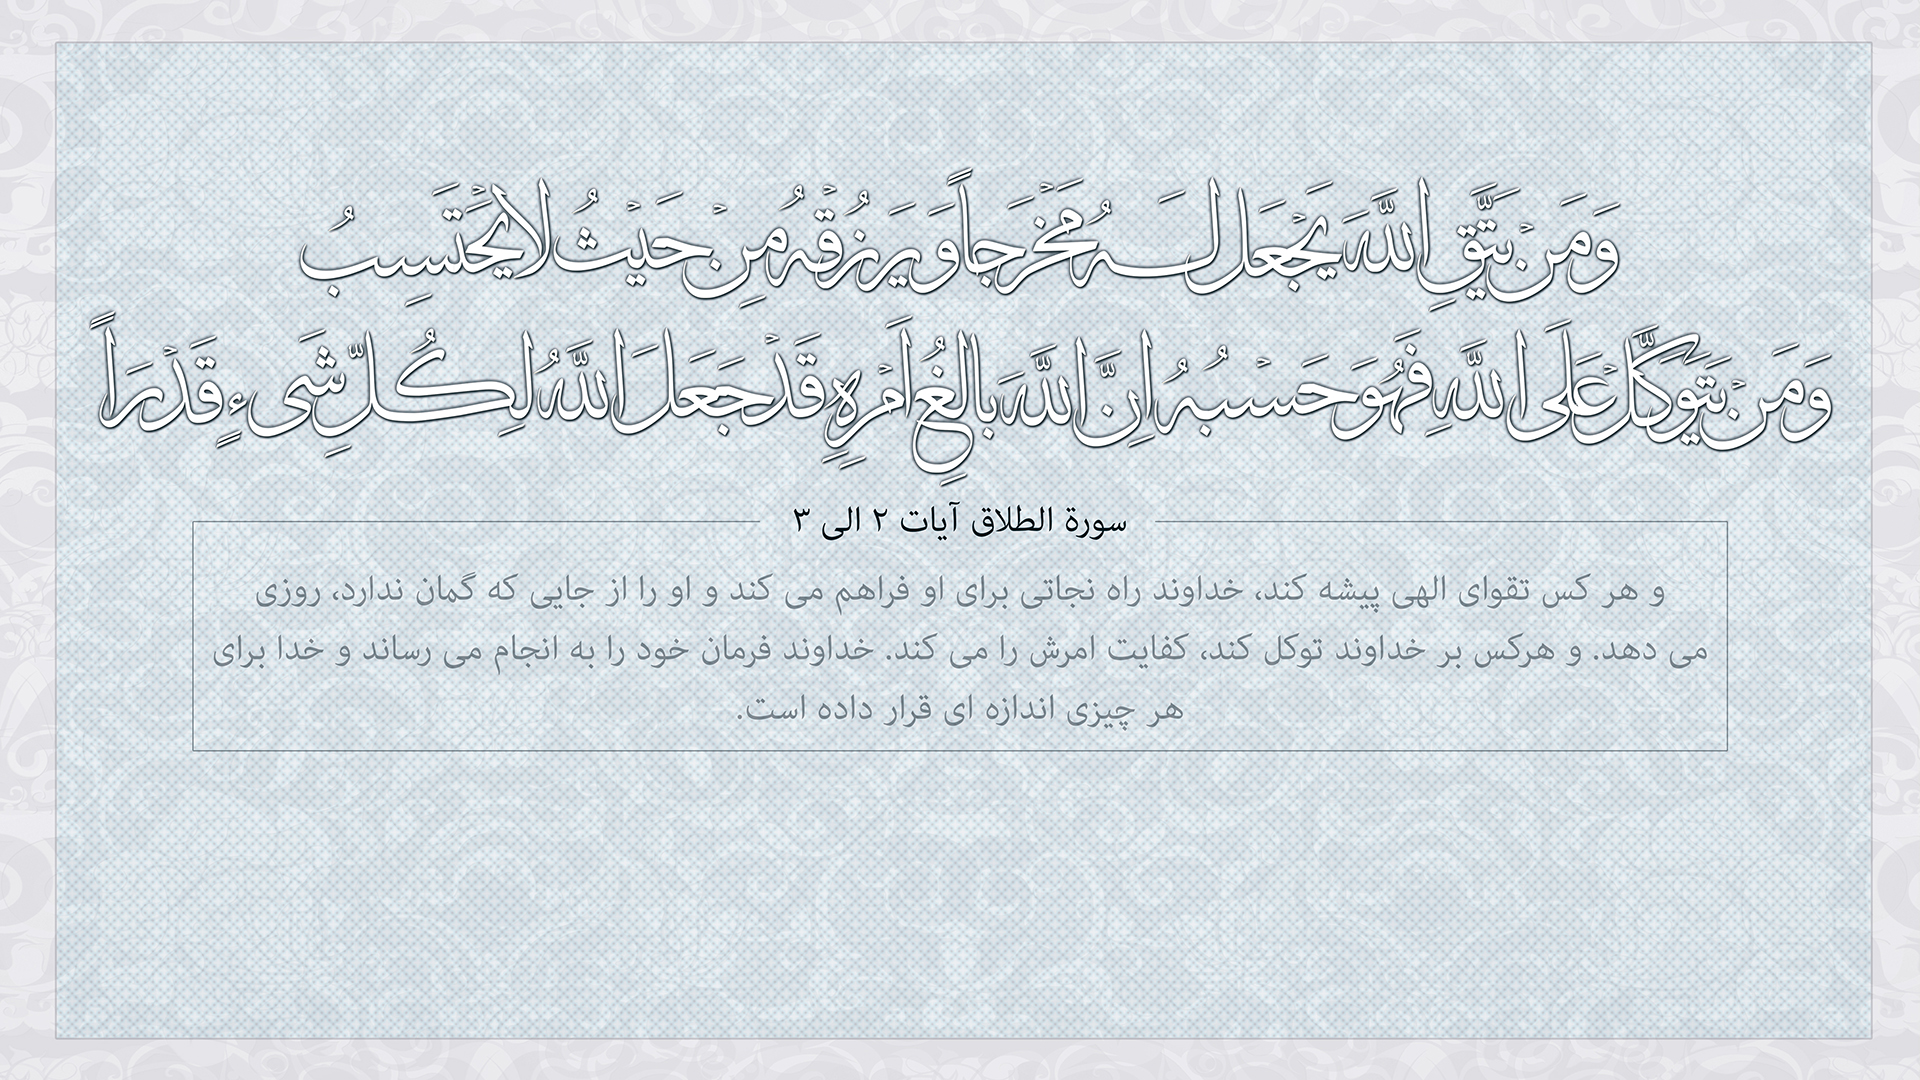 وَمَن يَتَّقِ اللَّهَ يَجْعَل لَهُ مَخْرَجاً وَ يَرْزُقْهُ مِنْ حَيْثُ لا يَحْتَسِبُ
وَمَنْ يَتَوَكَّلْ عَلَى اللَّهِ فَهُوَ حَسْبُهُ اِنَّ اللَّهَ بالِغُ اَمْرِهِ قَدْ جَعَلَ اللَّهُ لِكُلِّ شَىءٍ قَدْرَاً
سورة الطلاق آیات ۲ الی ۳
و هر کس تقوای الهی پیشه کند، خداوند راه نجاتی برای او فراهم می کند و او را از جایی که گمان ندارد، روزی
می دهد. و هرکس بر خداوند توکل کند، کفایت امرش را می کند. خداوند فرمان خود را به انجام می رساند و خدا برای
هر چیزی اندازه ای قرار داده است.